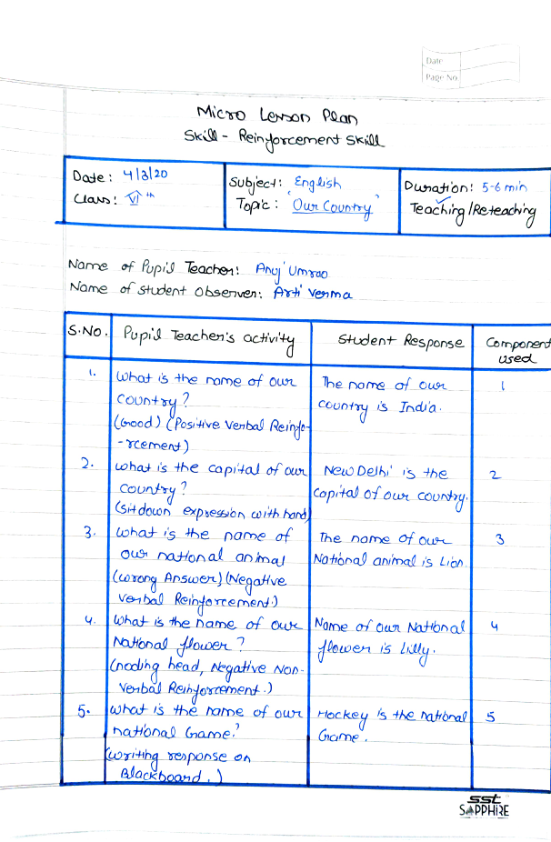 Date
Page No
Micro Lesson Plan
Skill - Reinforcement Skill
Date: 4/3/20
Class: VIth
Subject: English
Topic: 'Our Country'
Duration: 5-6 min
Teaching/Reteaching
Name of Pupil Teacher: Anuj Umrao
Name of Student Observer: Arti Verma
S.No.
Pupil Teacher's activity
Student Response
Component
used
1.
What is the name of our
country?
(Good) (Positive Verbal Reinfo-
-rcement)
The name of our
country is India.
1
2.
what is the capital of our
country?
(sit down expression with hand)
New Delhi is the
capital of our country.
2
3.
what is the name of
our national animal
(wrong Answer) (Negative
verbal Reinforcement)
The name of our
National animal is Lion
3
4.
what is the name of our
National flower?
(noding head, Negative Non-
Verbal Reinforcement.)
Name of our National
flower is Lilly.
4
5.
what is the name of our
national Game?
(writing response on
Blackboard.)
Hockey is the national
Game.
5
sst
SAPPHIRE